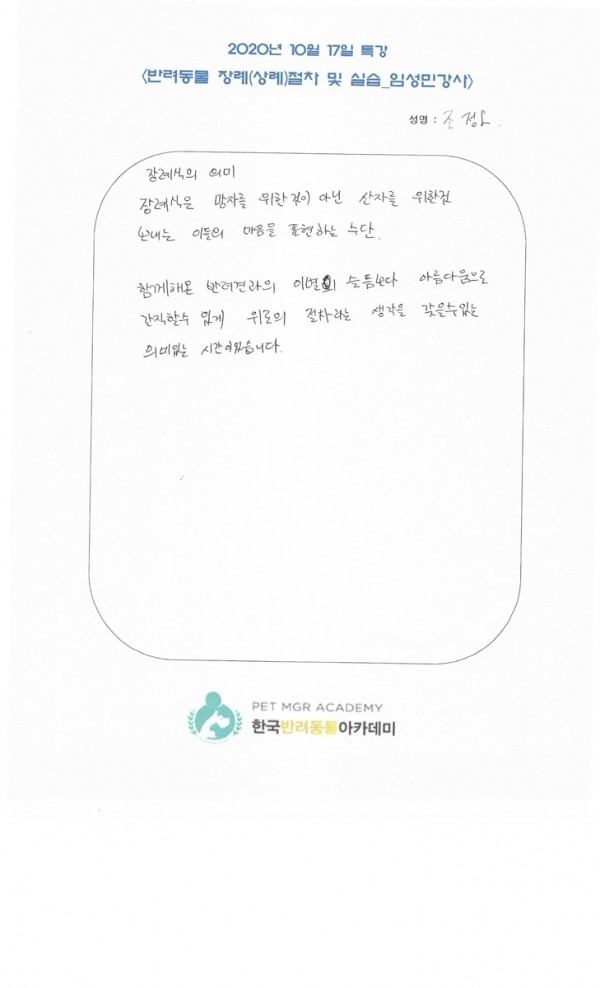 2020년 10월 17일 특강
<반려동물 장례(상례)절차 및 실습_임성민강사>
성명 : 조 정
장례식의 의미
장례식은 망자를 위한것이 아닌 산자를 위한것
보내는 이들의 마음을 표현하는 수단.
함께해온 반려견과의 이별의 슬픔보다 아름다움으로
간직할수 있게 위로의 절차라는 생각을 갖을수있는
의미있는 시간이었습니다.
PET MGR ACADEMY
한국반려동물아카데미